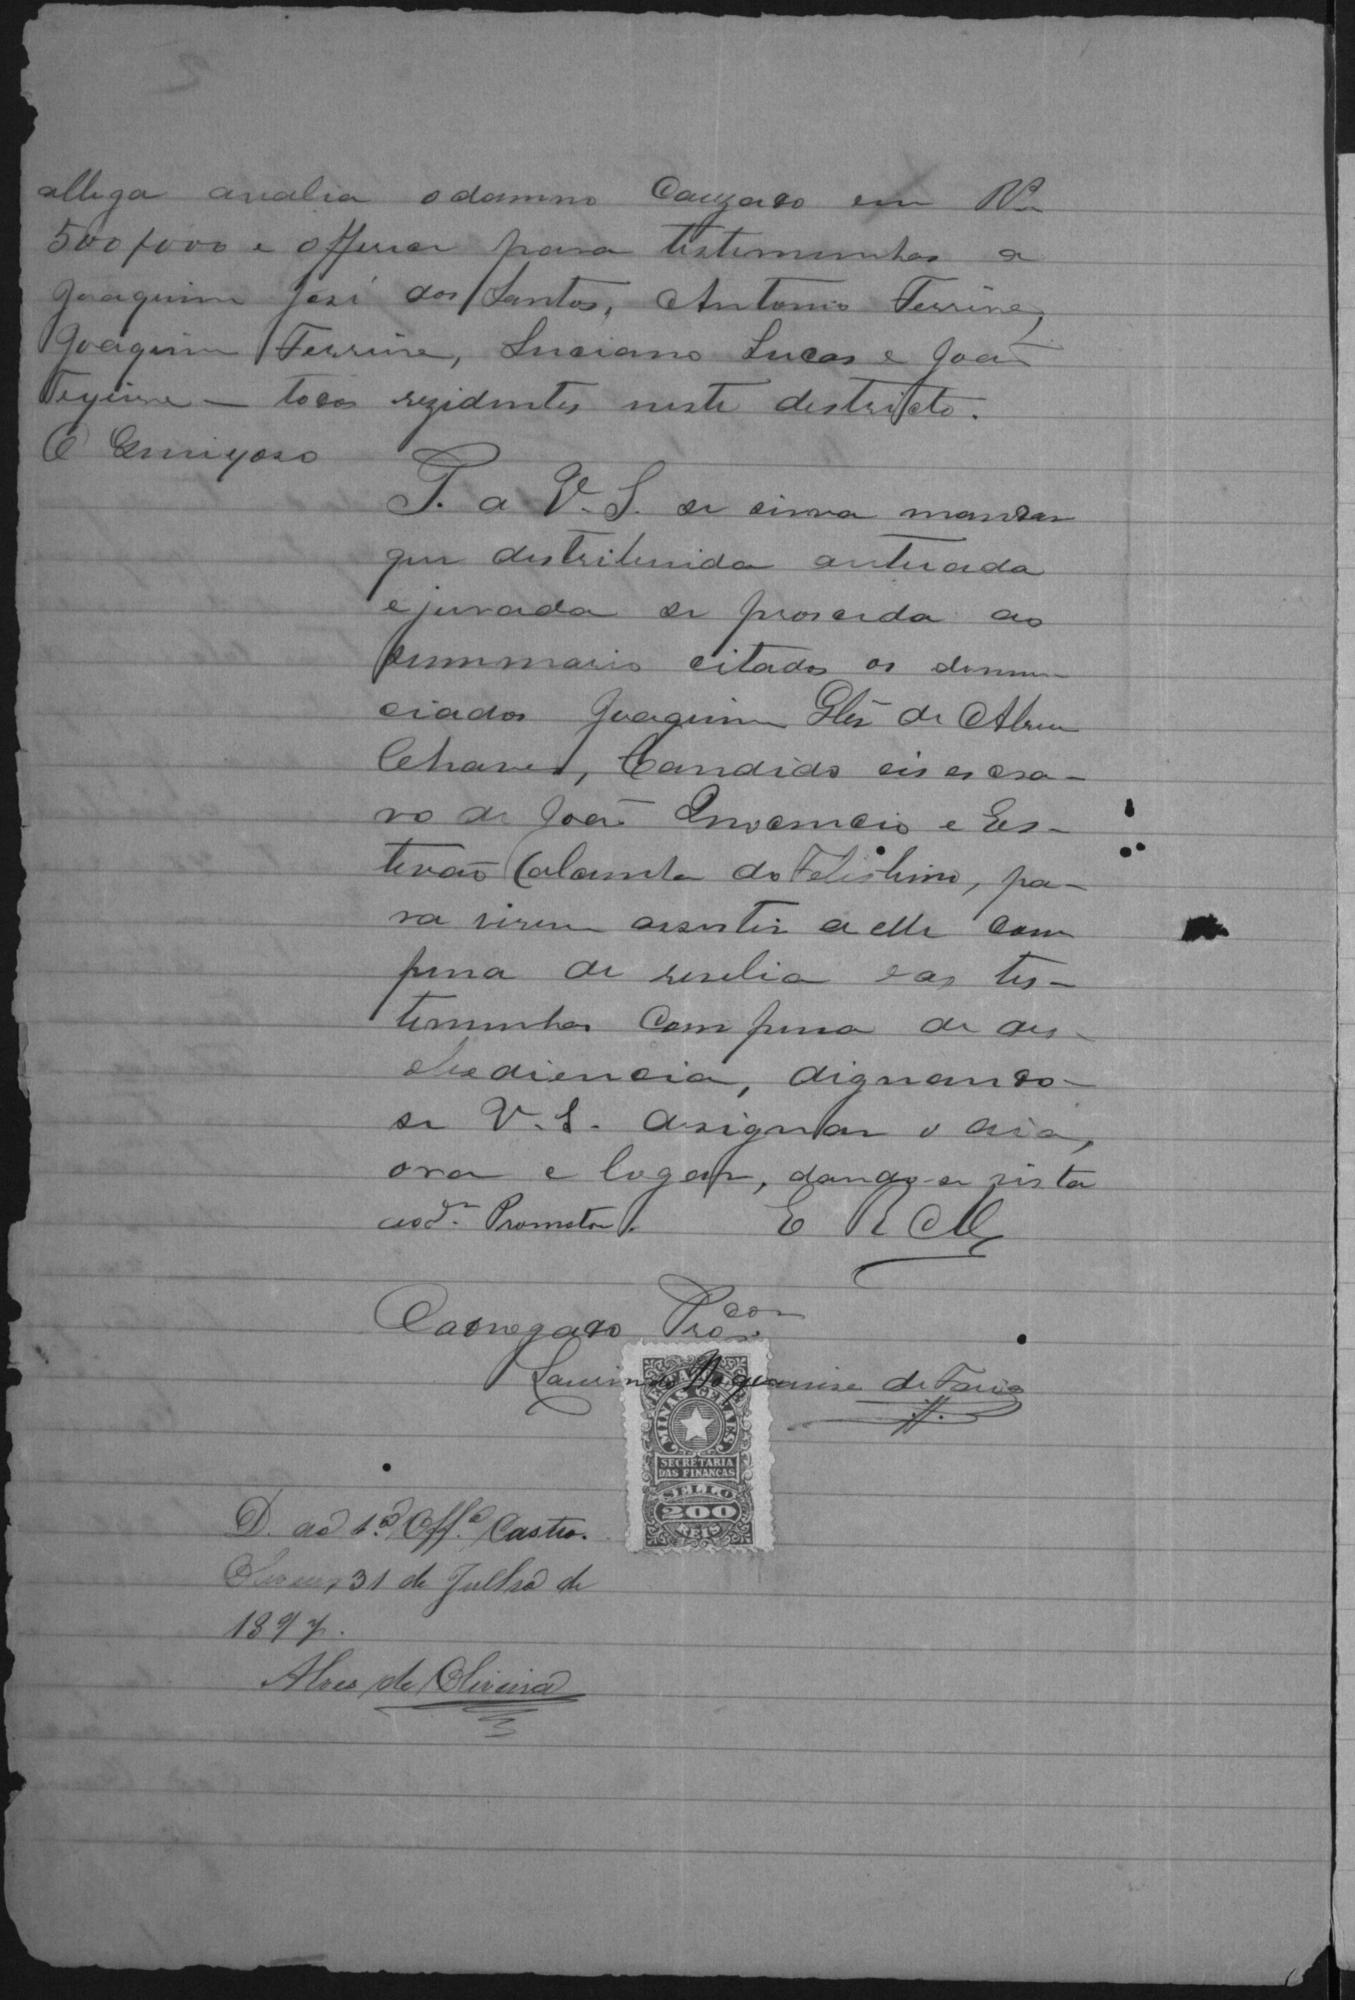 allega avalia o damno Cauzado em Rs
500$000 e offerece para testemunhas a
Joaquim José dos Santos, Antonio Ferrine,
Joaquim Ferrine, Luciano Lucas e João
todos rezidentes neste destricto.
P. a V. S. se sirva mandar
que destribuida autuada
e jurada se proceda ao
summario citados os denun-
ciados Joaquim Glz de Abreu
Chaves, Candido eis escra-
vo de João Innocencio e Es-
tevão do Felisbino, pa-
ra virem assestir a elle com
pena de revelia e as tes-
temunhas com pena de des-
obediencia, dignando-
se V. S. designar o dia,
ora e logar, dando-se vista
ao dr. Promotor. E R M
de Faria
ESTADO DE MINAS GERAES
SECRETARIA
DAS FINANÇAS
SELLO
200
REIS
D. ao 1.º Off.º Castro.
31 de Julho de
1897.
Alves de Oliveira